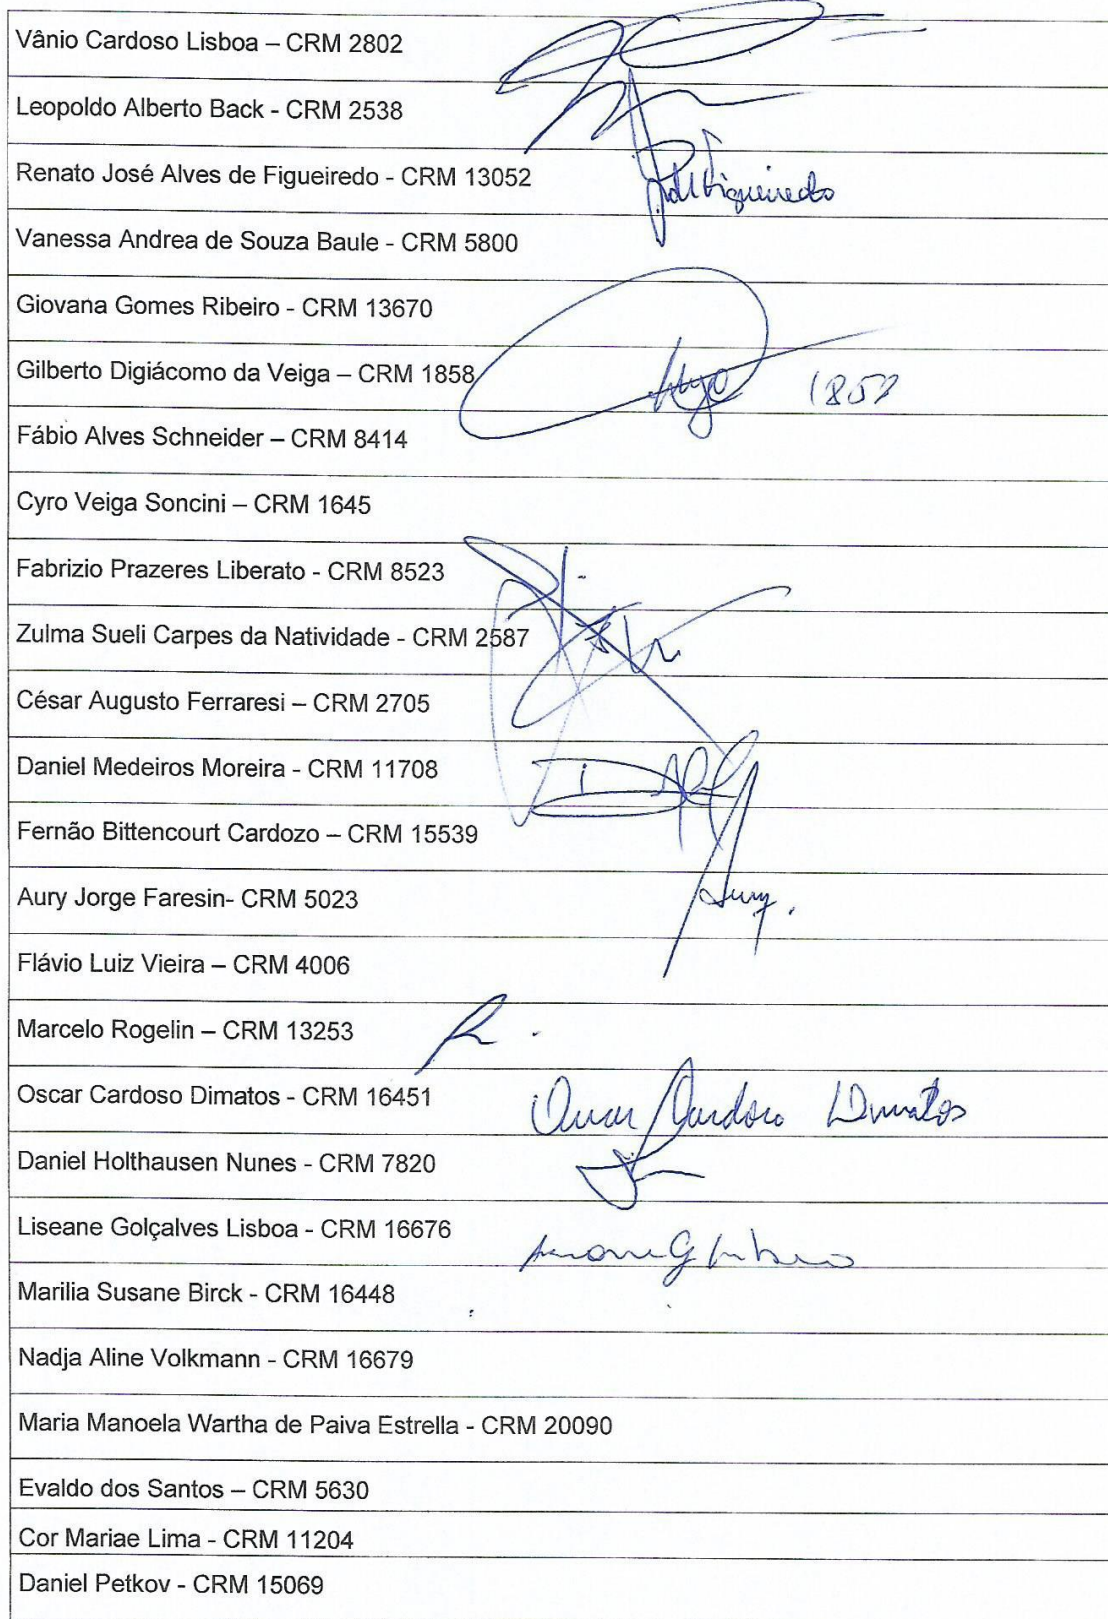 Vânio Cardoso Lisboa – CRM 2802
Leopoldo Alberto Back - CRM 2538
Renato José Alves de Figueiredo - CRM 13052
Figueiredo
Vanessa Andrea de Souza Baule - CRM 5800
Giovana Gomes Ribeiro - CRM 13670
Gilberto Digiácomo da Veiga – CRM 1858
Fábio Alves Schneider – CRM 8414
Cyro Veiga Soncini – CRM 1645
Fabrizio Prazeres Liberato - CRM 8523
Zulma Sueli Carpes da Natividade - CRM 2587
César Augusto Ferraresi – CRM 2705
Daniel Medeiros Moreira - CRM 11708
Fernão Bittencourt Cardozo – CRM 15539
Aury Jorge Faresin- CRM 5023 Aury.
Flávio Luiz Vieira – CRM 4006
Marcelo Rogelin – CRM 13253
Oscar Cardoso Dimatos - CRM 16451 Oscar Cardoso Dimatos
Daniel Holthausen Nunes - CRM 7820
Liseane Golçalves Lisboa - CRM 16676
Marilia Susane Birck - CRM 16448
Nadja Aline Volkmann - CRM 16679
Maria Manoela Wartha de Paiva Estrella - CRM 20090
Evaldo dos Santos – CRM 5630
Cor Mariae Lima - CRM 11204
Daniel Petkov - CRM 15069